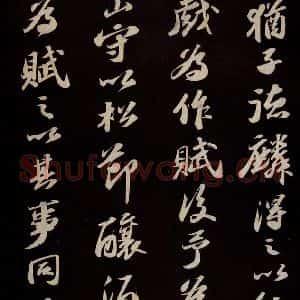 猶子德麟得之以
戲為作賦後予為
山守以松節釀酒
為賦之以其事同
Shufawang.cn